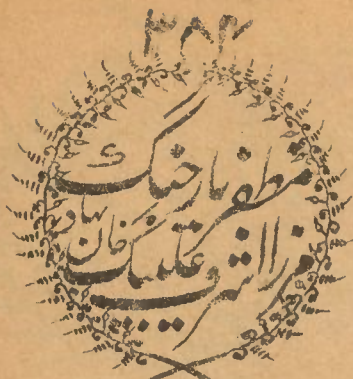 مظفر یار جنگ
مرزا اشرف علیبیگ خان بہادر